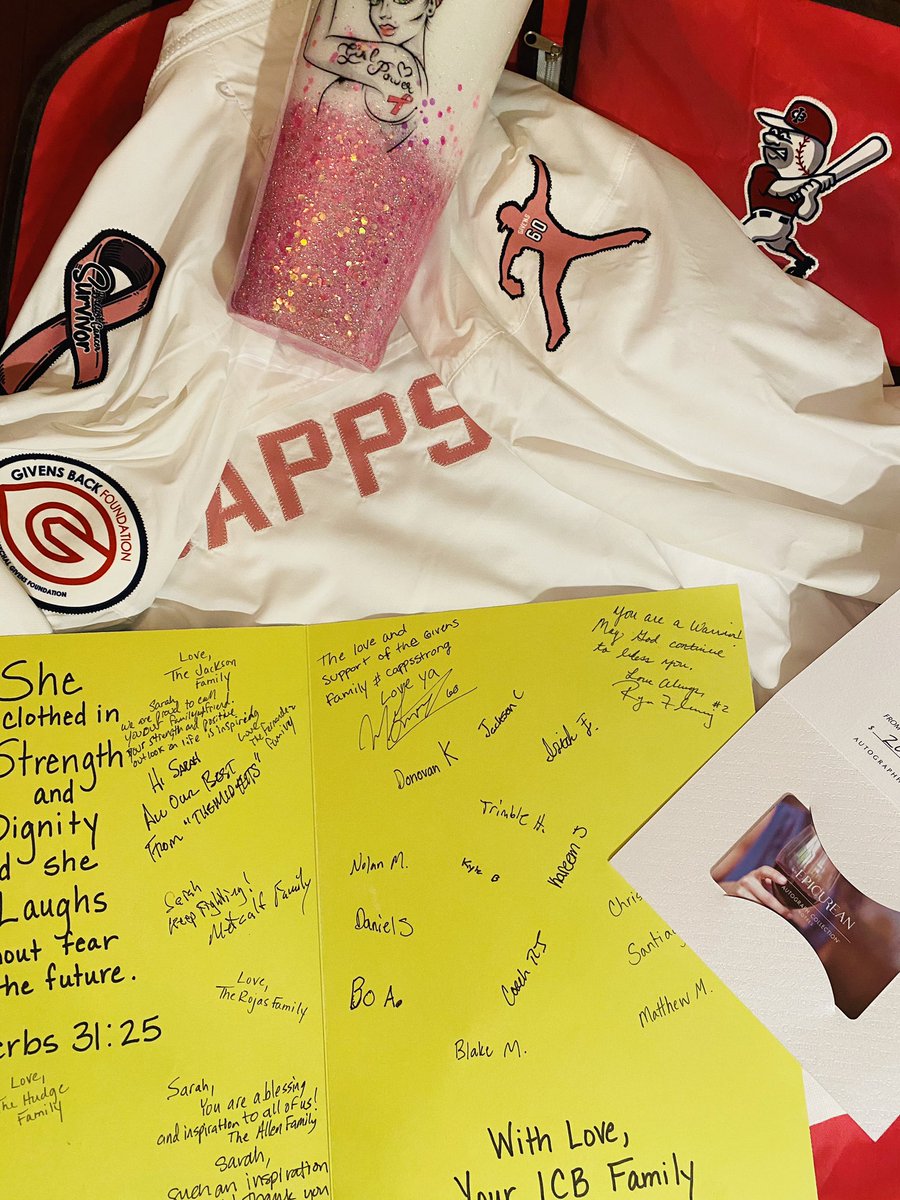 Girl Power
Survivor
60
GIVENS BACK FOUNDATION
GIVENS FOUNDATION
APPS
She
clothed in
Strength
and
Dignity
she
Laughs
fear
the future.
31:25
Love,
The Hudge
Family
Love,
The Jackson
Family
Sarah
we are proud to call
you our family friend.
Your strength and positive
outlook on life is inspiring
Love
Family
Hi Sarah
All Our Best
From
Sarah
Keep Fighting!
Metcalf Family
Love,
The Rojas Family
Sarah,
You are a blessing
and inspiration to all of us!
The Allen Family
Sarah,
Such an inspiration
thank you
The love and
support of the Givens
Family # cappsstrong
Love ya
60
You are a Warrior!
May God continue
to bless you.
Love Always
#2
Donovan K
Jackson
Isiah F.
Trimble H.
Nolan M.
Kyle B
Kareem J
Daniel S
Chris
Coach RJ
Santia
Bo A.
Matthew M.
Blake M.
With Love,
Your ICB Family
FROM
$
AUTOGRAPH
EPICUREAN
AUTOGRAPH COLLECTION